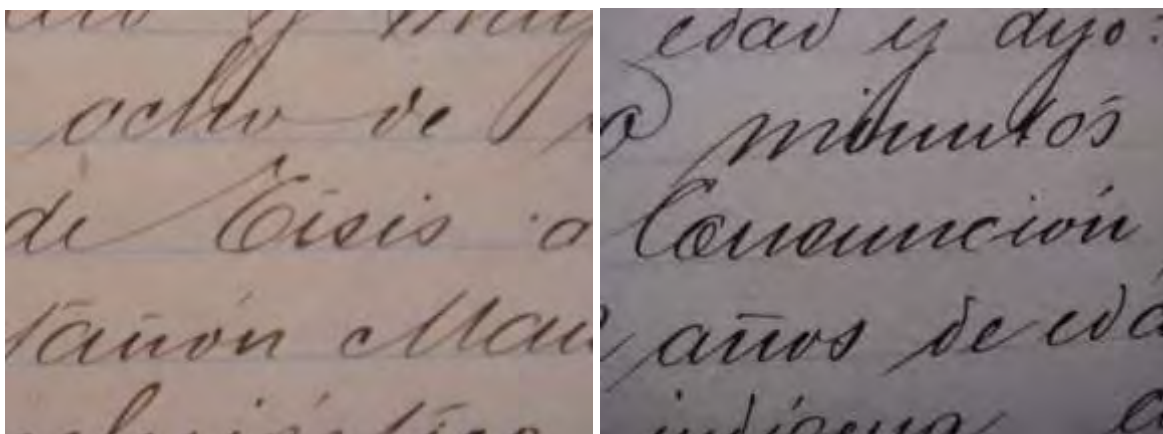 ocho de
de Tisis a
tañón Mau
edad y dijo:
minutos
Consunción
años de eda
indígena